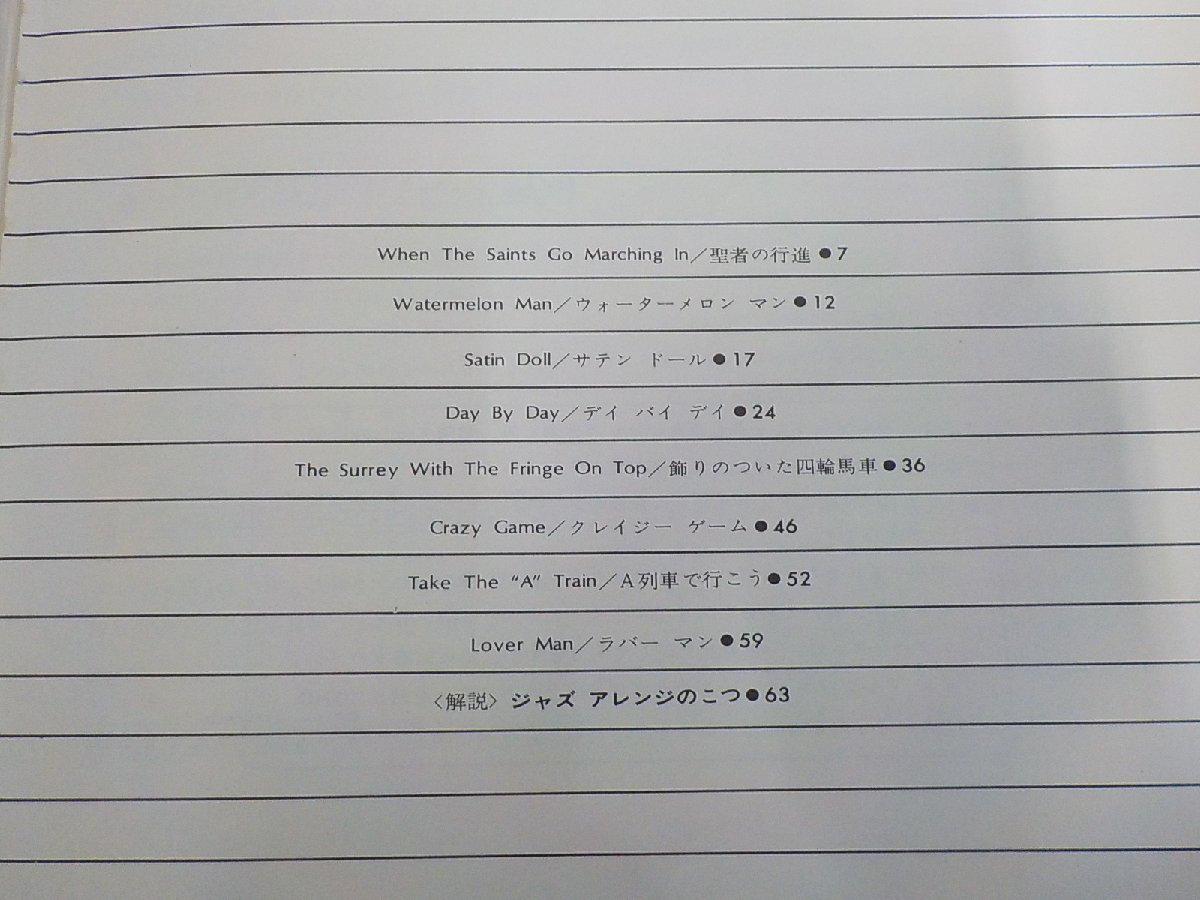 When The Saints Go Marching In／聖者の行進●7
Watermelon Man／ウォーターメロン マン●12
Satin Doll／サテン ドール●17
Day By Day／デイ バイ デイ●24
The Surrey With The Fringe On Top／飾りのついた四輪馬車●36
Crazy Game／クレイジー ゲーム●46
Take The “A” Train／A列車で行こう●52
Lover Man／ラバー マン●59
〈解説〉ジャズ アレンジのこつ●63